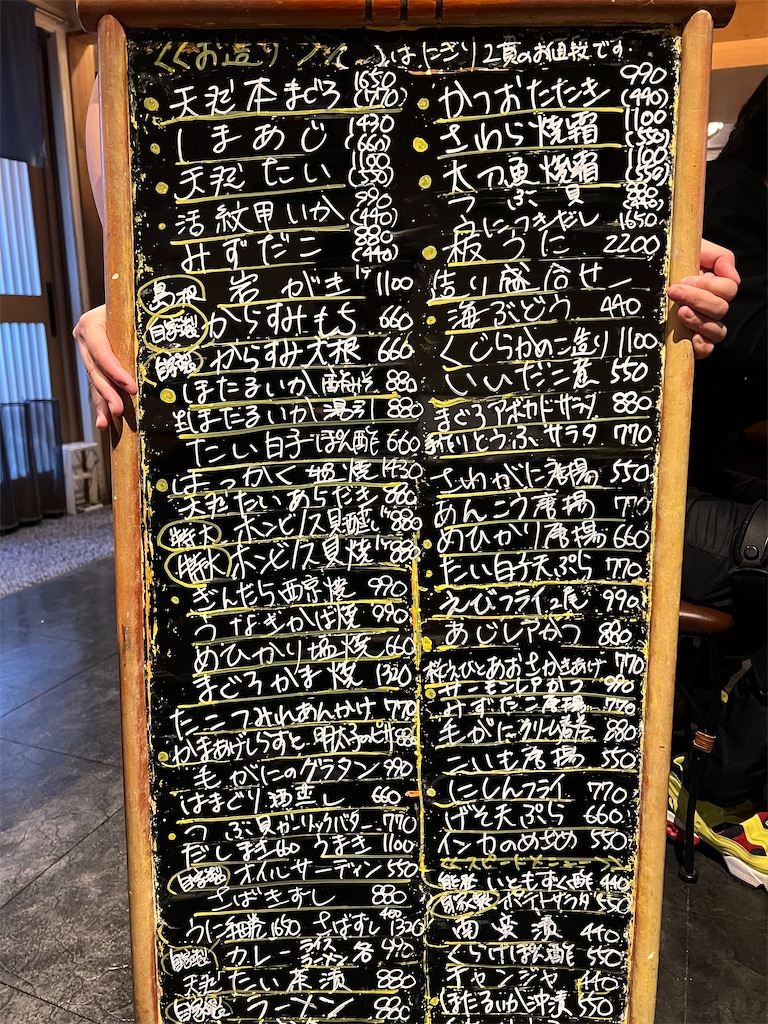 <<お造り>> ( )はにぎり2貫のお値段です
天然本まぐろ 1650
しまあじ 1430 (660)
天然たい 1100 (550)
活紋甲いか 990 (440)
みずだこ 880 (440)
島根 岩がき 1ケ 1100
自家製 からすみもち 660
自家製 からすみ大根 660
ほたるいか酢みそ 880
生ほたるいか湯引 880
たい白子ぽん酢 660
はっかく 焼 1430
天然たいあらだき 880
特大 ホンビノス貝酒蒸し 1ケ 880
特大 ホンビノス貝焼 1ケ 880
ぎんだら西京焼 990
うなぎかば焼 990
めひかり塩焼 660
まぐろかま焼 1320
たこつみれあんかけ 770
かまあげしらすと明太子のピザ 880
毛がにのグラタン 990
はまぐり酒蒸し 660
つぶ貝ガーリックバター 770
だしまき 440 うまき 1100
自家製 オイルサーディン 550
さばきずし 880
うに和牛 1650 さばすし 1320
自家製 カレー ライス ラーメン 各 990
天然たい茶漬 880
自家製 ラーメン 880
かつおたたき 990 (440)
さわら焼霜 1100 (550)
太刀魚焼霜 1100 (550)
つぶ貝 880 (440)
うにつきだし 1650
板うに 2200
造り盛合せ
海ぶどう 440
くじらかのこ造り 1100
いいだこ煮 550
まぐろアボカドサラダ 880
手作りとうふサラダ 770
さわがに唐揚 550
あんこう唐揚 770
めひかり唐揚 660
たい白子天ぷら 770
えびフライ2尾 990
あじレアかつ 880
桜えびとあおさかきあげ 770
サーモンレアかつ 990
みずだこ唐揚 770
毛がにクリーム春巻 880
こいも唐揚 550
にしんフライ 770
げそ天ぷら 660
インカのめざめ 550
<<スピードメニュー>>
能登 いともずく酢 440
自家製 ポテトサラダ 550
南蛮漬 440
くらげぽん酢 550
チャンジャ 440
ほたるいか沖漬 550